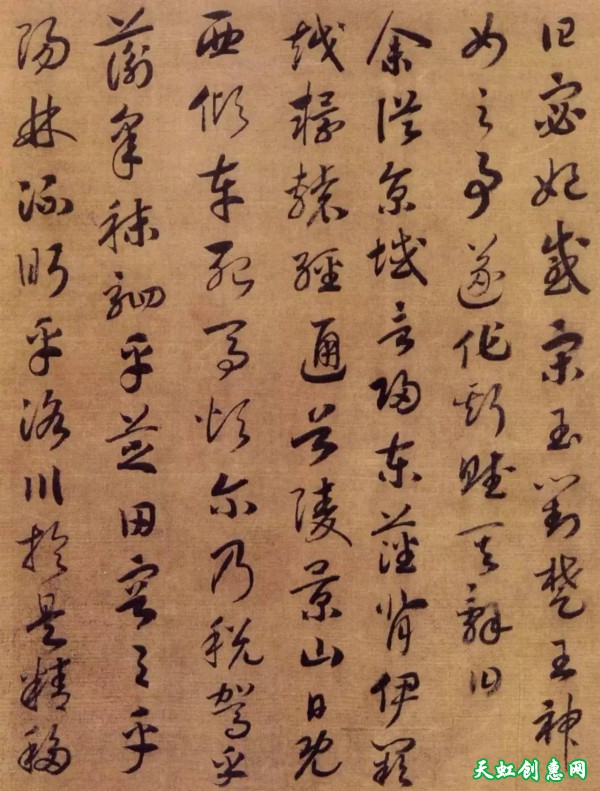 曰宓妃感宋玉對楚王神
女之事遂作斯賦其辭曰
余從京域言歸東藩背伊闕
越轘轅經通谷陵景山日既
西傾車殆馬煩尔乃稅駕乎
蘅皋秣駟乎芝田容与乎
陽林流眄乎洛川於是精移
天虹创惠网